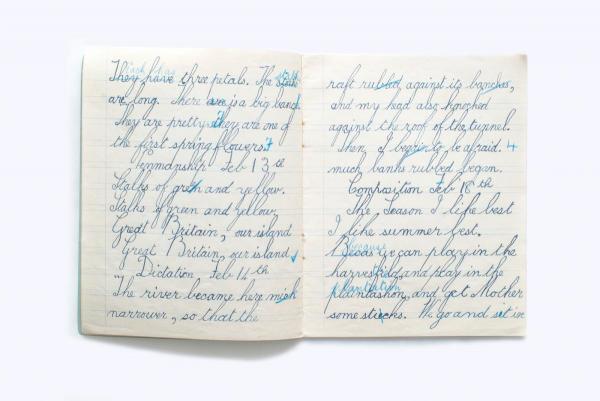 Each has
They have three petals. The stalk
are long. There are is a big banch
They are pretty they are one of
the first spring flowers.
enmanship Feb 13th
Stalks of green and yellow.
Stalks of green and yellow.
Great Britain, our island
Great Britain, our island
Dictation Feb 14th
"The river became here much
narrower, so that the
raft rubbed against its banches,
and my head also knocked
against the roof of the tunnel.
Then I began to be afraid. 4
much banks rubbed began.
Composition Feb 18th
The Season I like best
I like summer best.
because
Becaus we can play in the
harvest field, and play in the
plantation
plantashon, and get Mother
some sticks. We go and sit in